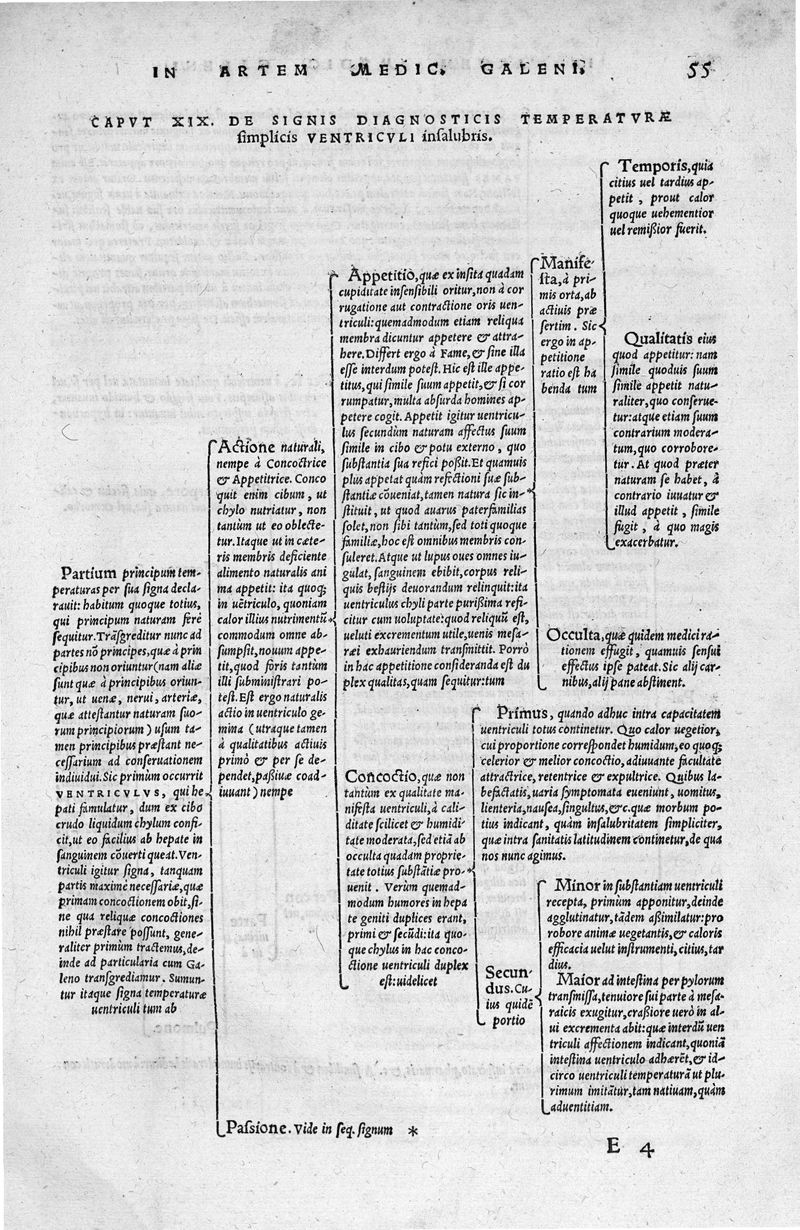 IN ARTEM MEDIC. GALENI. 55
CAPVT XIX. DE SIGNIS DIAGNOSTICIS TEMPERATVRÆ
simplicis VENTRICVLI insalubris.
Partium principum tem-
peraturas per sua signa decla-
rauit: habitum quoque totius,
qui principum naturam ferè
sequitur. Trãsgreditur nunc ad
partes nõ principes, quæ à prin
cipibus non oriuntur (nam aliæ
sunt quæ à principibus oriun-
tur, ut uenæ, nerui, arteriæ,
quæ attestantur naturam suo-
rum principiorum) usum ta-
men principibus præstant ne-
cessarium ad conseruationem
indiuidui. Sic primùm occurrit
VENTRICVLVS, qui he-
pati famulatur, dum ex cibo
crudo liquidum chylum confi-
cit, ut eo facilius ab hepate in
sanguinem cõuerti queat. Ven-
triculi igitur signa, tanquam
partis maximè necessariæ, quæ
primam concoctionem obit, si-
ne qua reliquæ concoctiones
nihil præstare possunt, gene-
raliter primùm tractemus, de-
inde ad particularia cum Ga-
leno transgrediamur. Sumun-
tur itaque signa temperaturæ
uentriculi tum ab
Actione naturali,
nempe à Concoctrice
& Appetitrice. Conco
quit enim cibum, ut
chylo nutriatur, non
tantùm ut eo oblecte-
tur. Itaque ut in cæte-
ris membris deficiente
alimento naturalis ani
ma appetit: ita quoq;
in uẽtriculo, quoniam
calor illius nutrimentũ
commodum omne ab-
sumpsit, nouum appe-
tit, quod foris tantùm
illi subministrari po-
test. Est ergo naturalis
actio in uentriculo ge-
mina (utraque tamen
à qualitatibus actiuis
primò & per se de-
pendet, paßiuæ coad-
iuuant) nempe
Appetitio, quæ ex insita quadam
cupiditate insensibili oritur, non à cor
rugatione aut contractione oris uen-
triculi: quemadmodum etiam reliqua
membra dicuntur appetere & attra-
here. Differt ergo à Fame, & sine illa
esse interdum potest. Hic est ille appe-
titus, qui simile suum appetit, & si cor
rumpatur, multa absurda homines ap-
petere cogit. Appetit igitur uentricu-
lus secundùm naturam affectus suum
simile in cibo & potu externo, quo
substantia sua refici poßit. Et quamuis
plus appetat quàm refectioni suæ sub-
stantiæ cõueniat, tamen natura sic in-
stituit, ut quod auarus paterfamilias
solet, non sibi tantùm, sed toti quoque
familiæ, hoc est omnibus membris con-
suleret. Atque ut lupus oues omnes iu-
gulat, sanguinem ebibit, corpus reli-
quis bestijs deuorandum relinquit: ita
uentriculus chyli parte purißima refi-
citur cum uoluptate: quod reliquũ est,
ueluti excrementum utile, uenis mesa-
ræi exhauriendum transmittit. Porrò
in hac appetitione consideranda est du
plex qualitas, quam sequitur: tum
Manife-
sta, à pri-
mis orta, ab
actiuis præ
sertim. Sic
ergo in ap-
petitione
ratio est ha
benda tum
Temporis, quia
citius uel tardius ap-
petit, prout calor
quoque uehementior
uel remißior fuerit.
Qualitatis eius
quod appetitur: nam
simile quoduis suum
simile appetit natu-
raliter, quo conserue-
tur: atque etiam suum
contrarium modera-
tum, quo corrobore-
tur. At quod præter
naturam se habet, à
contrario iuuatur &
illud appetit, simile
fugit, à quo magis
exacerbatur.
Occulta, quæ quidem medici ra-
tionem effugit, quamuis sensui
effectus ipse pateat. Sic alij car-
nibus, alij pane abstinent.
Concoctio, quæ non
tantùm ex qualitate ma-
nifesta uentriculi, à cali-
ditate scilicet & humidi-
tate moderata, sed etiã ab
occulta quadam proprie-
tate totius substãtiæ pro-
uenit. Verùm quemad-
modum humores in hepa
te geniti duplices erant,
primi & secũdi: ita quo-
que chylus in hac conco-
ctione uentriculi duplex
est: uidelicet
Primus, quando adhuc intra capacitatem
uentriculi totus continetur. Quo calor uegetior,
cui proportione correspõdet humidum, eo quoq;
celerior & melior concoctio, adiuuante facultate
attractrice, retentrice & expultrice. Quibus la-
befactatis, uaria symptomata eueniunt, uomitus,
lienteria, nausea, singultus, &c. quæ morbum po-
tius indicant, quàm insalubritatem simpliciter,
quæ intra sanitatis latitudinem continetur, de qua
nos nunc agimus.
Secun-
dus. Cu-
ius quidẽ
portio
Minor in substantiam uentriculi
recepta, primùm apponitur, deinde
agglutinatur, tãdem aßimilatur: pro
robore animæ uegetantis, & caloris
efficacia uelut instrumenti, citius, tar
dius.
Maior ad intestina per pylorum
transmissa, tenuiore sui parte à mesa-
raicis exugitur, craßiore uerò in al-
ui excrementa abit: quæ interdũ uen
triculi affectionem indicant, quoniã
intestina uentriculo adhærẽt, & id-
circo uentriculi temperaturã ut plu-
rimum imitãtur, tam natiuam, quàm
aduentitiam.
Passione. Vide in seq. signum *
E 4